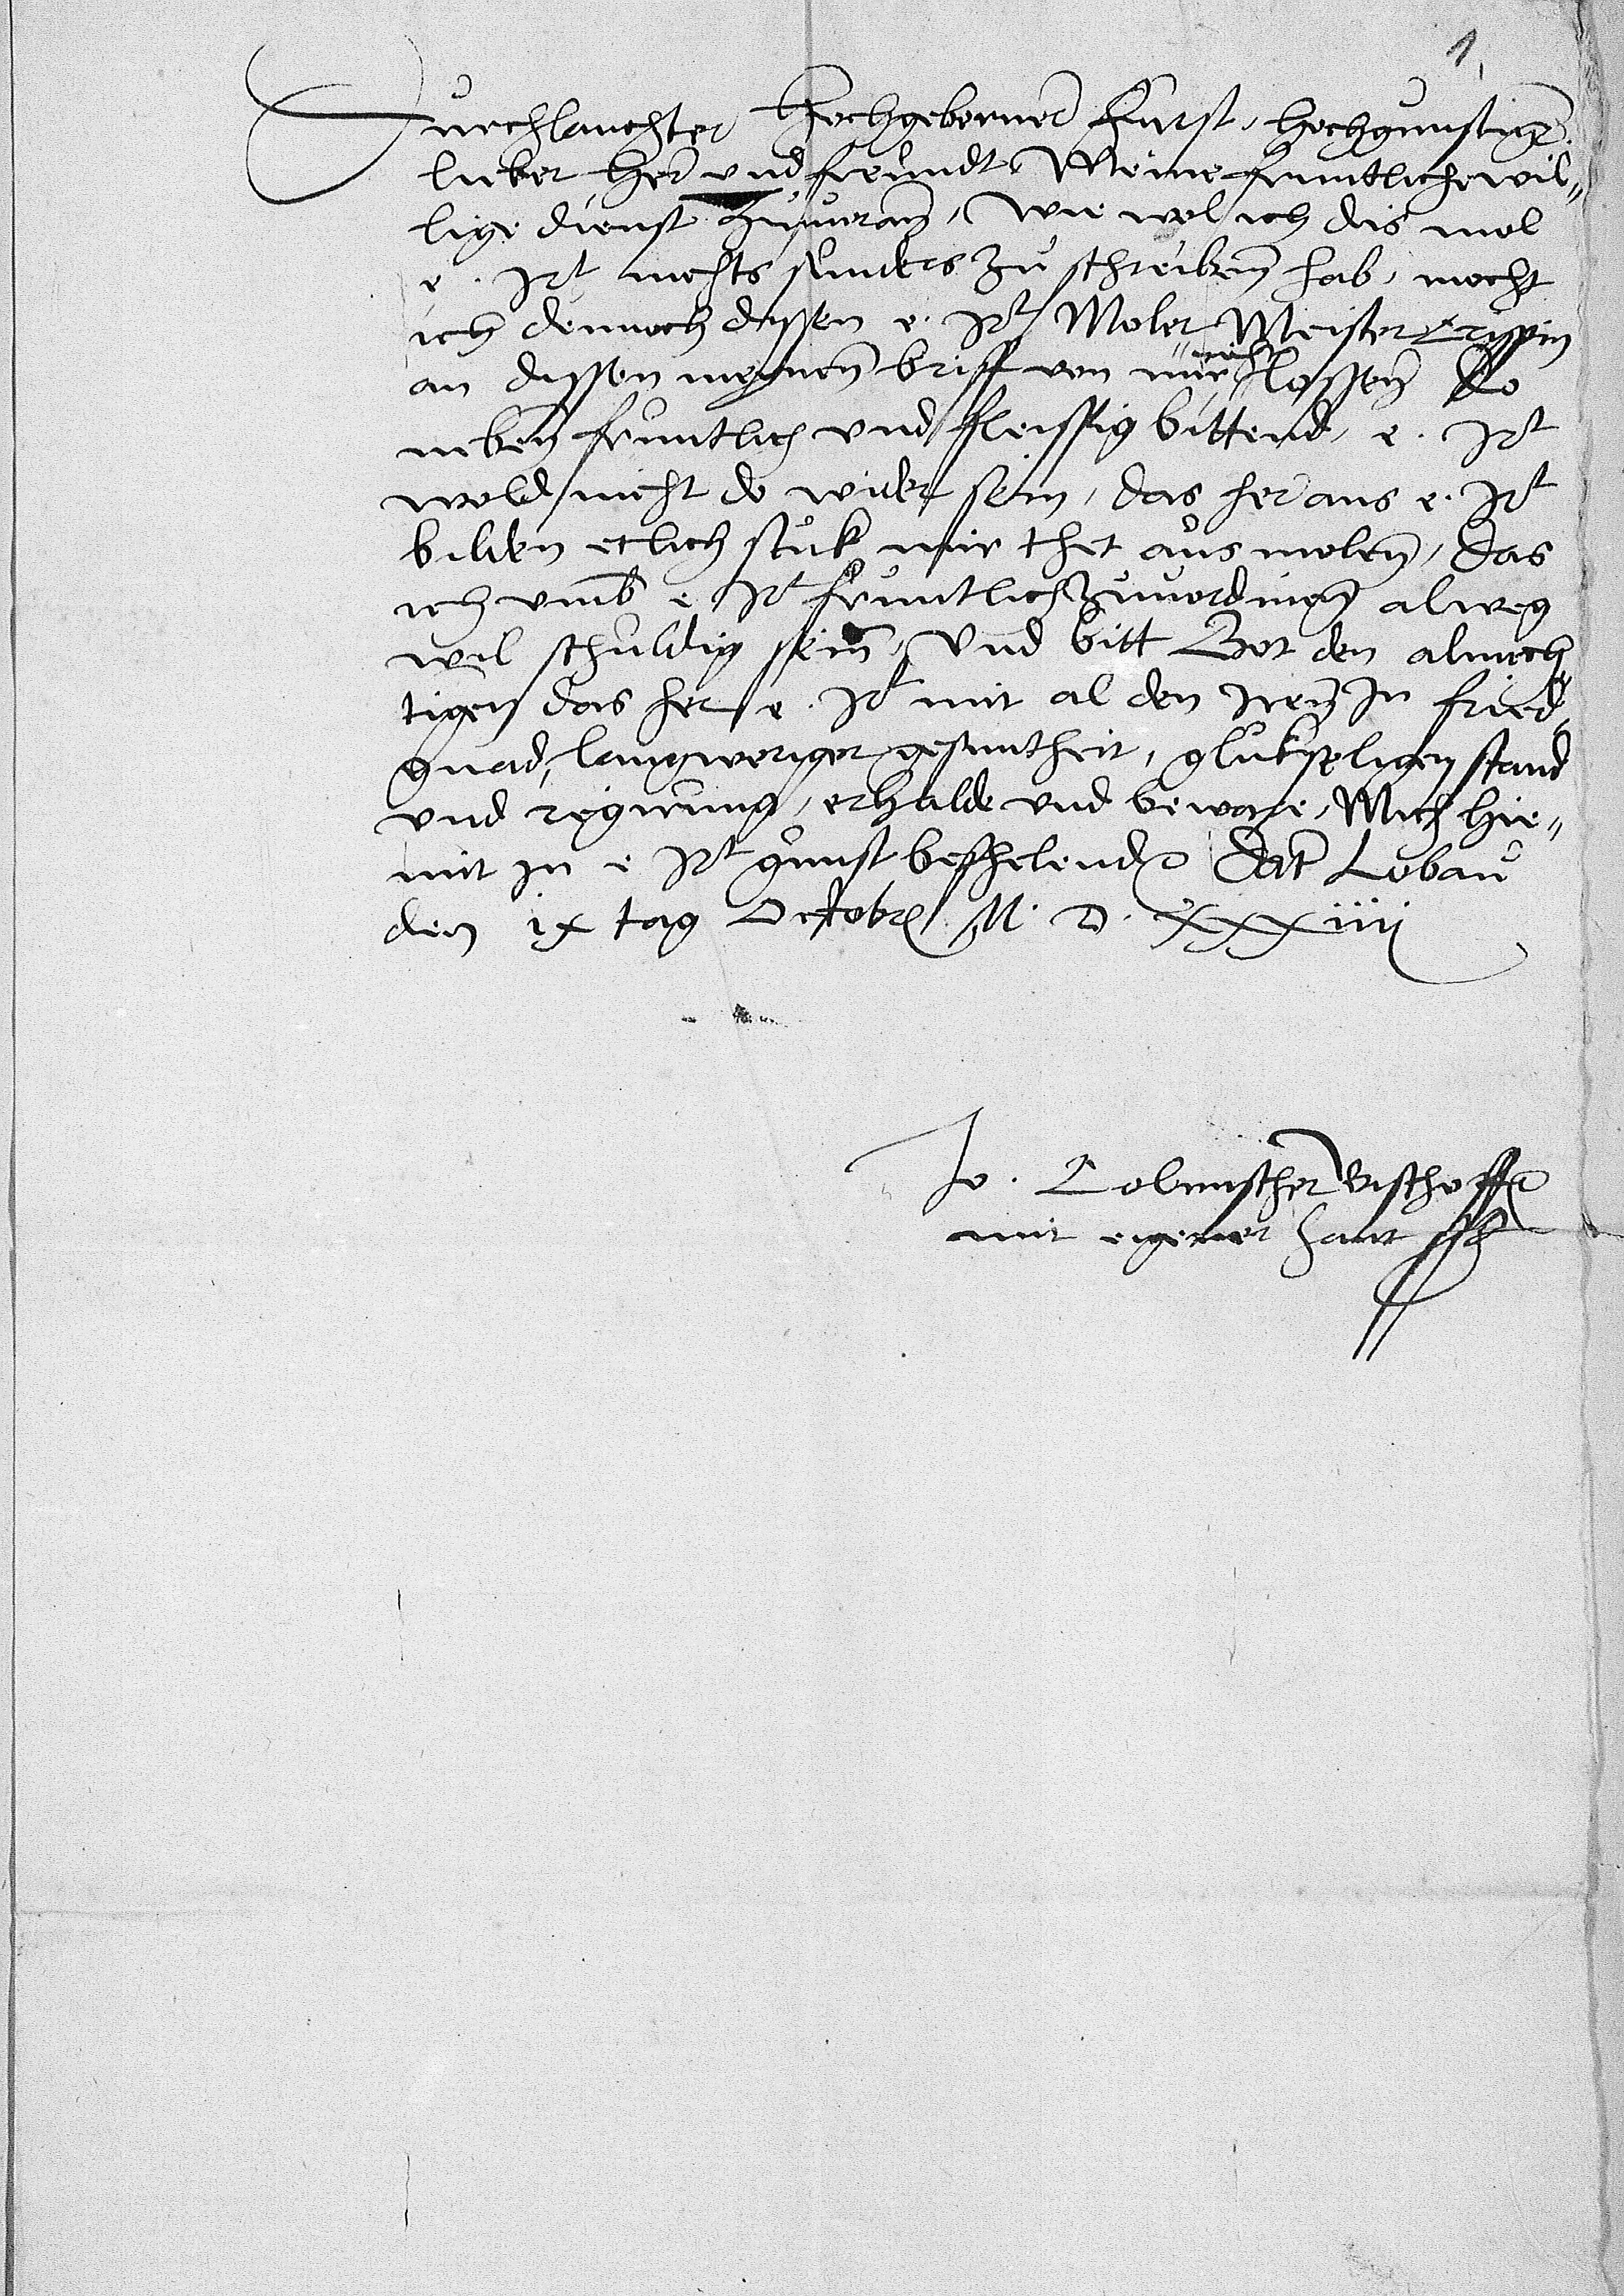 1
Durchlauchter Hochgeborner Furst, hochgunstiger
lieber her und freundt, Meine fruntliche wil„
lige dienst zuuoran, Wie wol ich dis mol
e. Irt nichts sunders zu schreiben hab, mocht
ich dennoch dissen e. Irt Moler Meister Crispin
an dissen meynen briff von mir nicht lossen Do
neben fruntlich und fleissig bittend, e. Irt
wold nicht do wider sein, das her aus e. Irt
bilden etlich stuk mir thet aus molen, das
ich umb e Irt fruntlich zuuordinen alweg
wil schuldig sein, Und bitt Got den almech„
tigen das her e. Irt mit al den iren In frid,
gnad, langweriger gesuntheit, glukseligen stand
und regirung, erhalde und beware, Mich hie„
mit in e Irt gunst befhelend Dat Lobau
den ix tag Octobr M. D. xxxiiij
Jo. Colmischer Bischoff
mit eigener hant sst